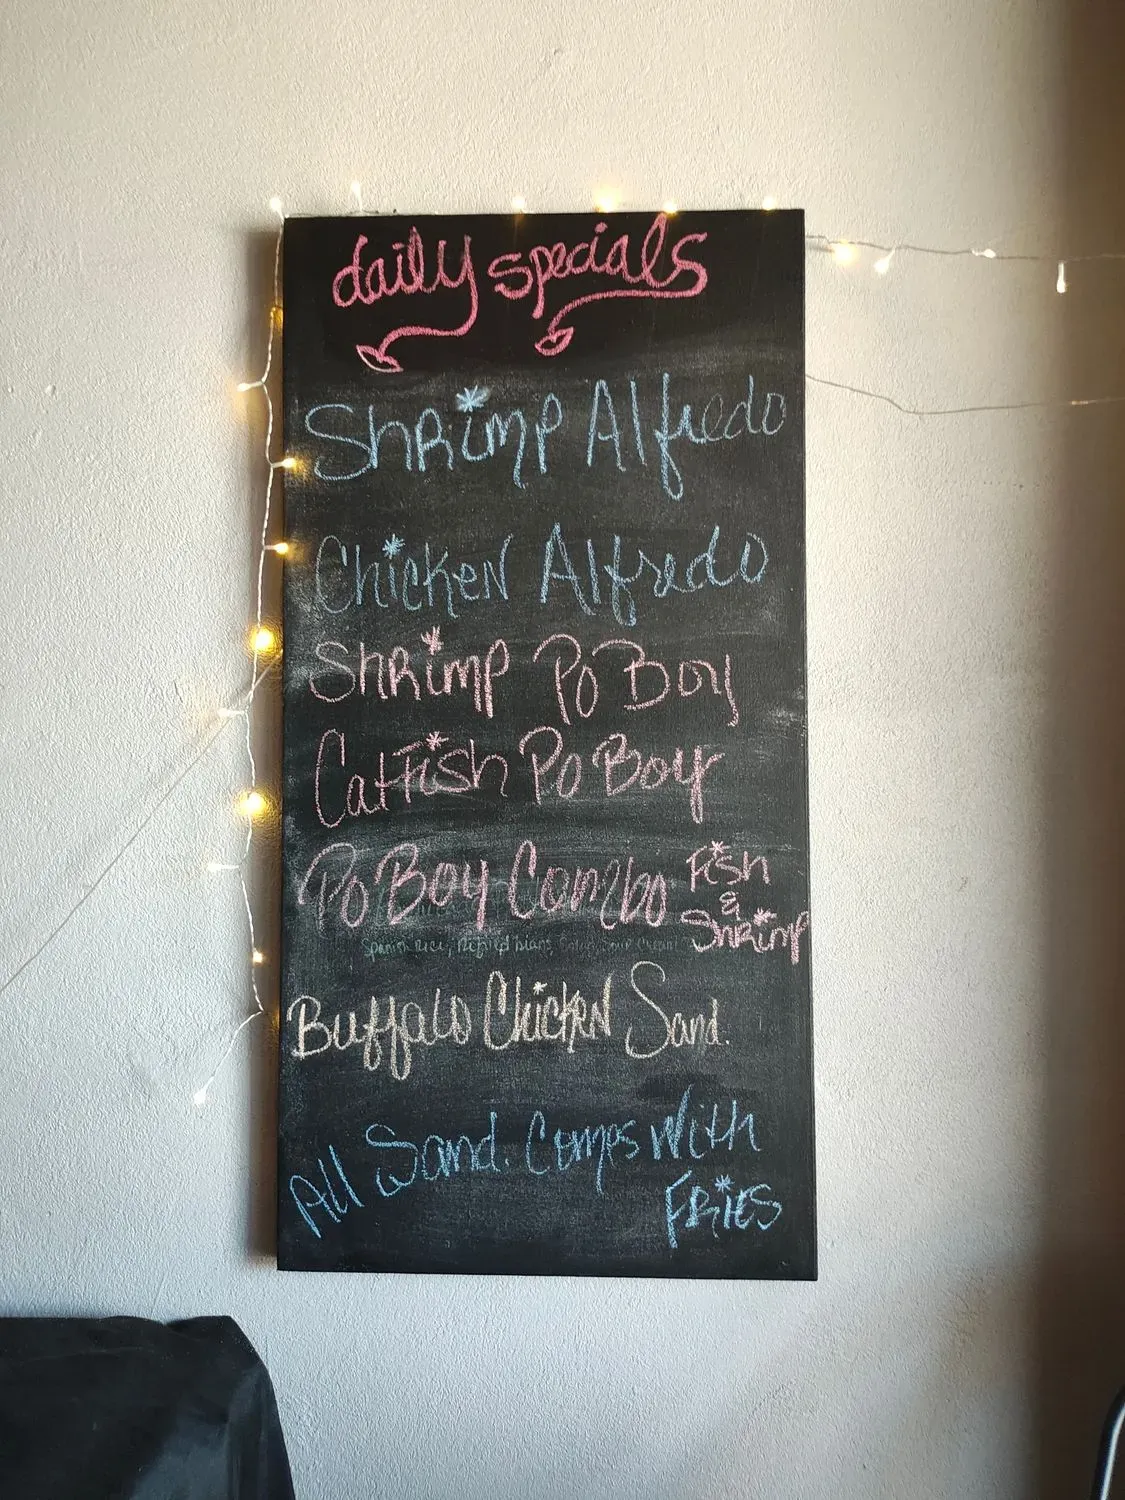 daily specials
Shrimp Alfredo
Chicken Alfredo
Shrimp Po Boy
Catfish Po Boy
Po Boy Combo Fish
&
Shrimp
Spanish Rice, Refried beans, Sour Cream
Buffalo Chicken Sand.
All Sand. Comes With
FRIES